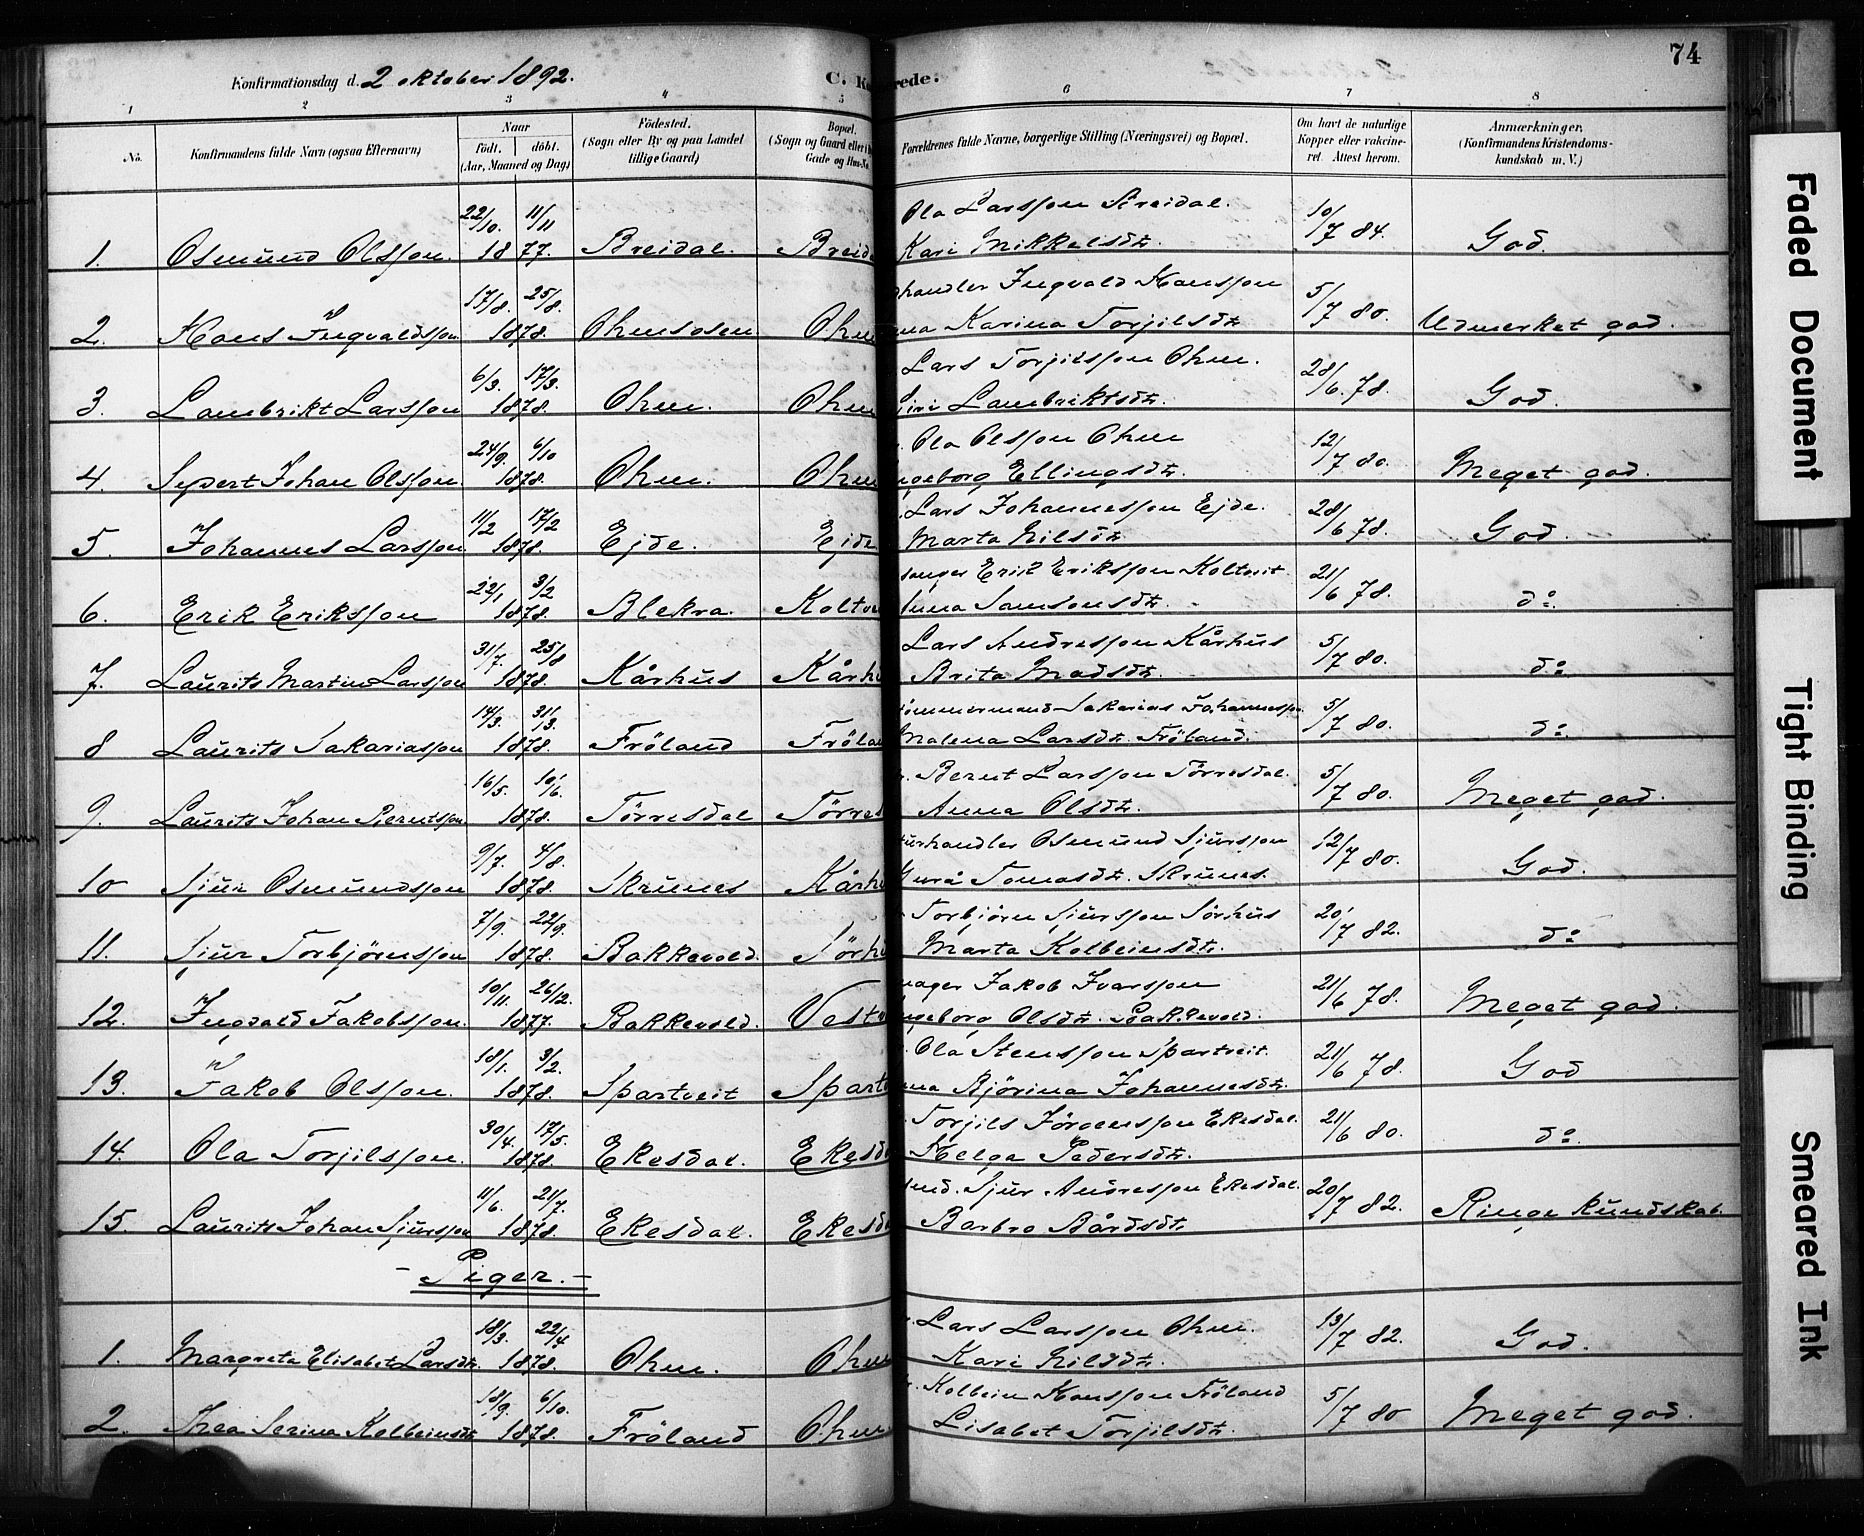 74
Konfirmationsdag d. 2 oktober 1892.
C. Ko rede.
1 2 3 4 5 6 7 8
No. Konfirmandens fulde Navn (ogsaa Efternavn) Naar födt. döbt. (Aar, Maaned og Dag) Födested. (Sogn eller By og paa Landet tillige Gaard) Bopæl. (Sogn og Gaard eller Gade og Hus-No. Forældrenes fulde Navne, borgerlige Stilling (Næringsvei) og Bopæl. Om havt de naturlige Kopper eller vakcineret. Attest herom. Anmærkninger. (Konfirmandens Kristendomskundskab m. V.)
1. Osmund Olsson. 22/10. 11/11 1877. Breidal. Breida Ola Larsson Breidal. Kari Mikkelsdtr. 10/7 84. God.
2. Hans Ingvaldsson 17/8. 25/8. 1878. Ohmsosen Ohm handler Ingvald Hansson na Karina Torjilsdtr. 5/7 80. Udmerket god.
3. Lambrikt Larsson 6/3. 17/3. 1878. Ohm. Ohm Lars Torjilsson Ohm. Siri Lambriktsdtr. 28/6. 78. God.
4. Sjvert Johan Olsson. 24/9. 6/10 1878. Ohm. Ohm Ola Olsson Ohm ngeborg Ellingsdtr. 12/7 80. Meget god.
5. Johannes Larsson 11/2 17/2 1878. Ejde. Ejde Lars Johannesson Ejde. Marta Nilsdtr 28/6 78. God.
6. Erik Eriksson 22/1 3/2 1878. Blekra. Koltve Erik Eriksson Koltveit nna Samsonsdtr. 21/6 78. do.
7. Laurits Martin Larsson 31/7. 25/8 1878. Kårhus Kårhu Lars Andresson Kårhus Brita Madsdtr. 5/7 80. do.
8 Laurits Sakariasson 14/3. 31/3. 1878. Fröland Frölan ömmermand Sakarias Johannesson Malena Larsdtr. Fröland. 5/7 80. do.
9. Laurits Johan Berntsson 16/5. 10/6. 1878. Törresdal Törres Bernt Larsson Törresdal. Anna Olsdtr. 5/7 80. Meget god.
10 Sjur Osmundsson 9/7. 4/8. 1878. Skrunes Kårhu urhandler Osmund Sjursson Gurå Tomasdtr. Skrunes. 12/7 80. God.
11. Sjur Torbjörnsson 7/9. 22/9. 1878. Bakkevold. Sörhu Torbjörn Sjursson Sörhus Marta Kolbeinsdtr. 20/7 82. do
12. Ingvald Jakobsson. 10/11. 26/12. 1877. Bakkevold. Vest mager Jakob Ivarsson ngeborg Olsdtr. Bakkevold. 21/6 78. Meget god.
13. Jakob Olsson. 18/1. 3/2. 1878. Spartveit Spart Ola Stensson Spartveit. na Björina Johannesdtr. 21/6 78. God
14. Ola Torjilsson. 30/4. 17/5. 1878. Ekesdal. Ekesda Torjils Jörgensson Ekesdal. Helga Pedersdtr. 21/6 80. do.
15. Laurits Johan Sjursson 11/6. 21/7. 1878. Ekesdal. Ekesda Sjur Andresson Ekesdal. Barbro Bårdsdtr. 20/7 82. Ringe kundskab.
- Piger. -
1. Margreta Elisabet Larsdtr. 18/3. 22/4 1878. Ohm. Ohm Lars Larsson Ohm. Kari Nilsdtr. 13/7 82. God.
2. Thea Serina Kolbeinsdtr 18/9. 6/10. 1878. Fröland Ohm Kolbein Hansson Fröland Lisabet Torjilsdtr. 5/7 80 Meget god.
Faded Document
Tight Binding
Smeared Ink